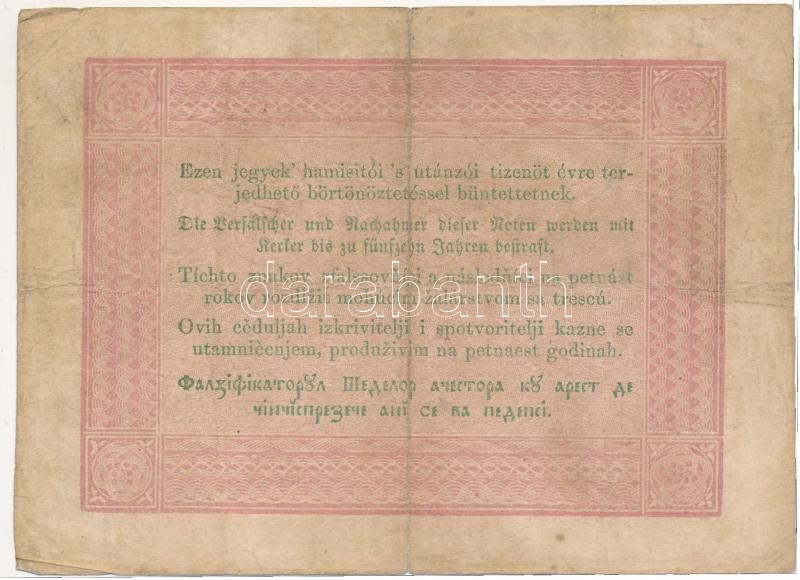 Ezen jegyek' hamisitói 's utánzói tizenöt évre ter-
jedhető börtönöztetéssel büntettetnek.
Die Verfälscher und Nachahmer dieser Noten werden mit
Kerker bis zu fünfzehn Jahren bestraft.
Tíchto znakov na petnást
darabanth
rokov mohúcím žalárstvom sa trescú.
Ovih cěduljah izkrivitelji i spotvoritelji kazne se
utamničenjem, produživim na petnaest godinah.
Фалзіфікаторꙋл Шеделор ачестора кꙋ арест де
чінчіспрезече ані се ва педепсі.